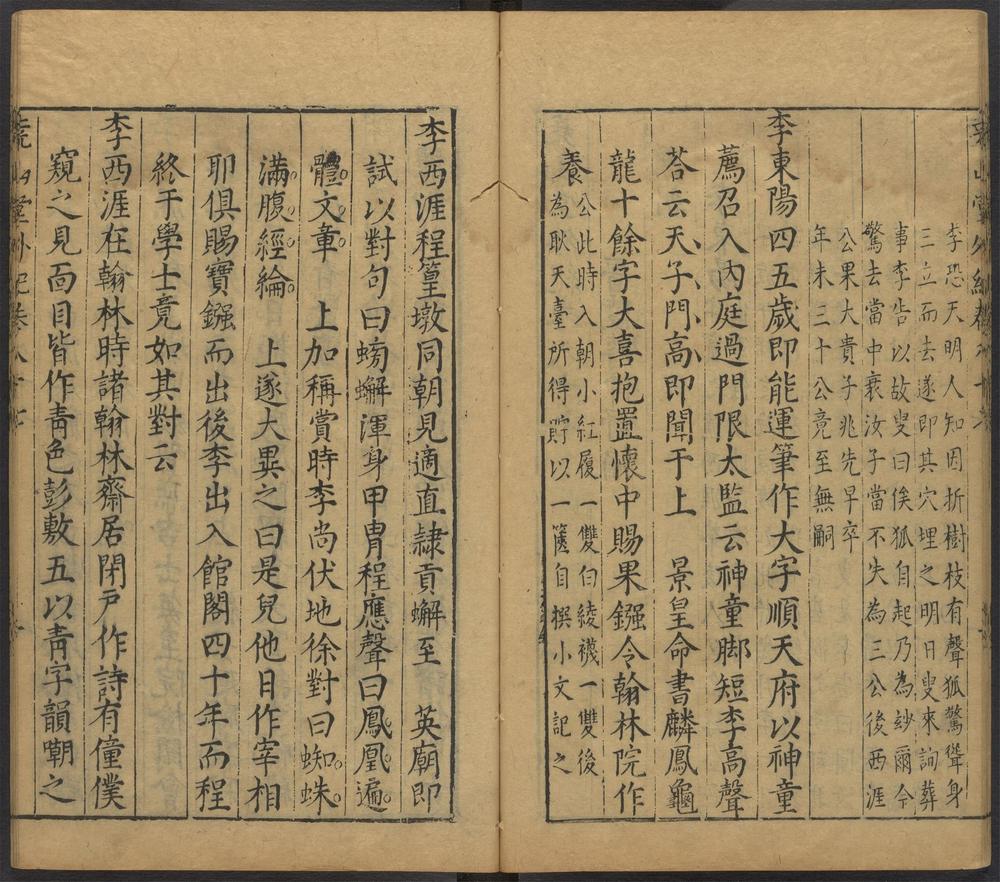 李恐天明人知因折樹枝有聲狐驚聳身
三立而去遂即其穴埋之明日叟來詢葬
事李告以故叟曰俟狐自起乃為紗爾今
驚去當中衰汝子當不失為三公後西涯
公果大貴子兆先早卒
年未三十公竟至無嗣
李東陽四五歲即能運筆作大字順天府以神童
薦召入內庭過門限太監云神童脚短李高聲
荅云天子門高即聞于上 景皇命書麟鳳龜
龍十餘字大喜抱置懷中賜果鏹令翰林院作
養公此時入朝小紅履一雙白綾襪一雙後
為耿天臺所得貯以一篋自撰小文記之
李西涯程篁墩同朝見適直隸貢蠏至 英廟即
試以對句曰螃蠏渾身甲冑程應聲曰鳳凰遍
體文章 上加稱賞時李尚伏地徐對曰蜘蛛
滿腹經綸 上遂大異之曰是兒他日作宰相
耶俱賜寶鏹而出後李出入館閣四十年而程
終于學士竟如其對云
李西涯在翰林時諸翰林齋居閉戶作詩有僮僕
窺之見面目皆作靑色彭敷五以靑字韻嘲之